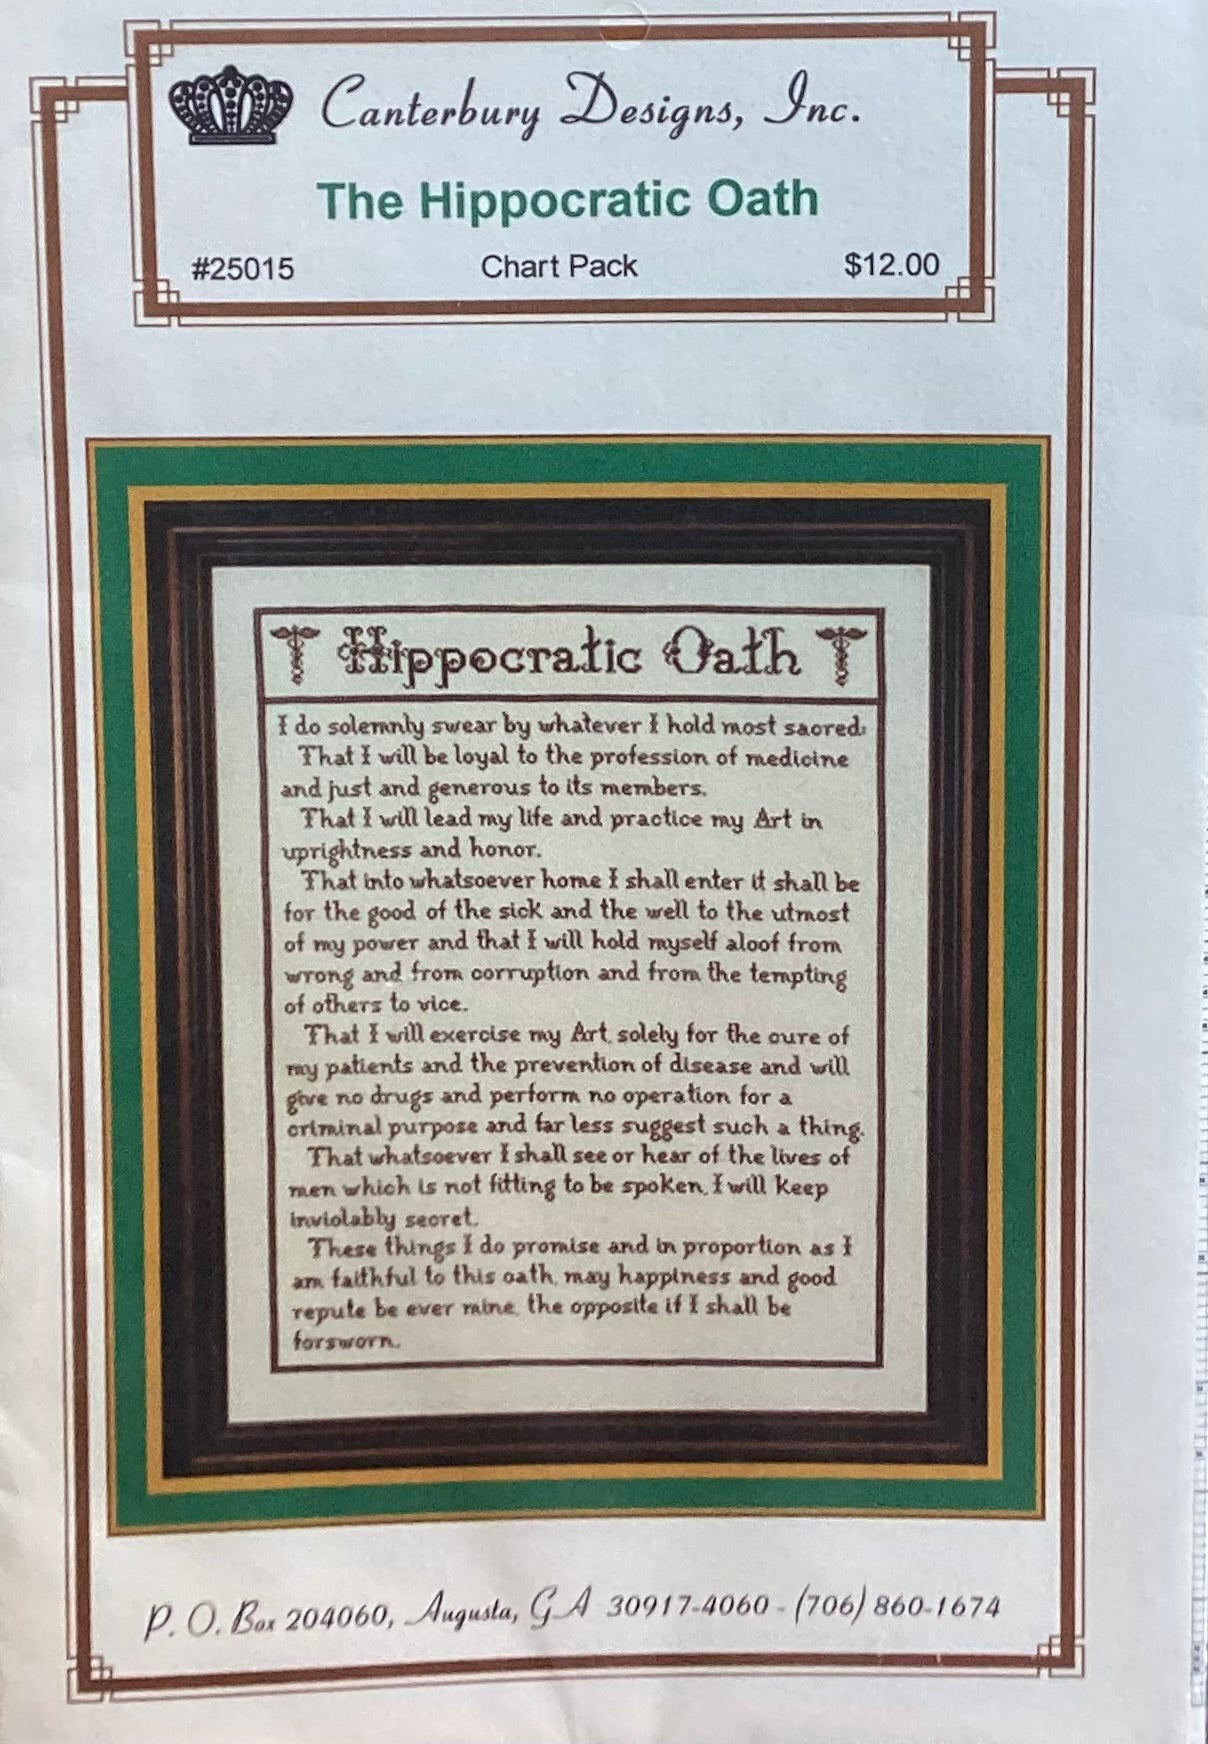 Canterbury Designs, Inc.
The Hippocratic Oath
#25015 Chart Pack $12.00
Hippocratic Oath
I do solemnly swear by whatever I hold most sacred:
That I will be loyal to the profession of medicine
and just and generous to its members.
That I will lead my life and practice my Art in
uprightness and honor.
That into whatsoever home I shall enter it shall be
for the good of the sick and the well to the utmost
of my power and that I will hold myself aloof from
wrong and from corruption and from the tempting
of others to vice.
That I will exercise my Art, solely for the cure of
my patients and the prevention of disease and will
give no drugs and perform no operation for a
criminal purpose and far less suggest such a thing.
That whatsoever I shall see or hear of the lives of
men which is not fitting to be spoken, I will keep
inviolably secret.
These things I do promise and in proportion as I
am faithful to this oath, may happiness and good
repute be ever mine, the opposite if I shall be
forsworn.
P. O. Box 204060, Augusta, GA 30917-4060 - (706) 860-1674